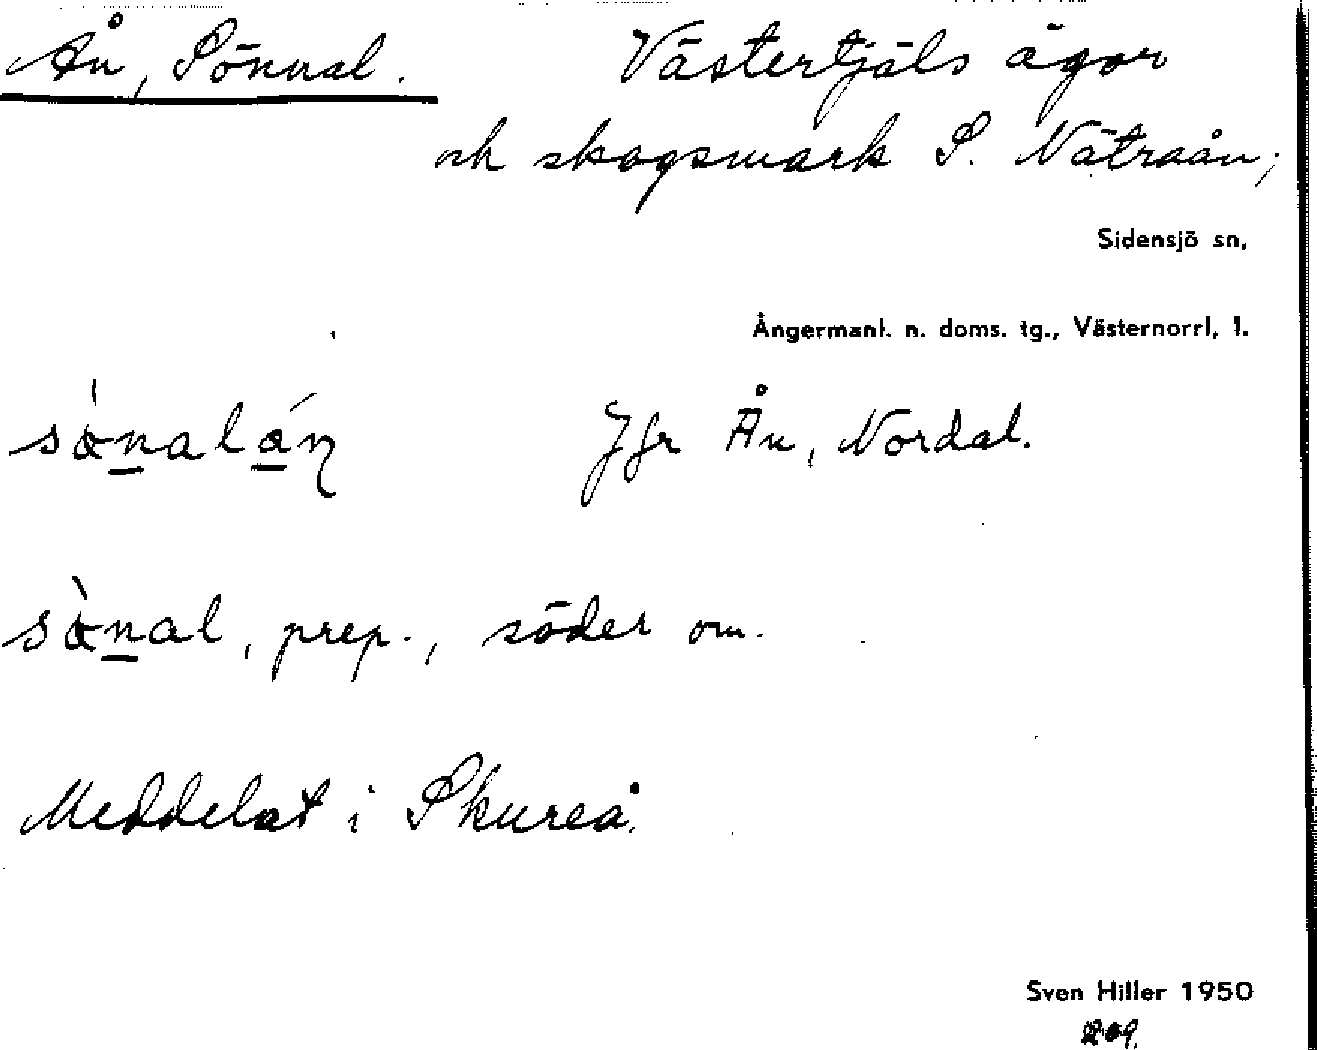 Ån, Sönnal. Västertjäls ägor
och skogsmark S. Nätraån;
Sidensjö sn,
Ångermanl. n. doms. tg., Västernorrl. l.
sònalán Jfr Ån, Nordal.
sònal, prep., söder om.
Meddelat i Skureå.
Sven Hiller 1950
209.